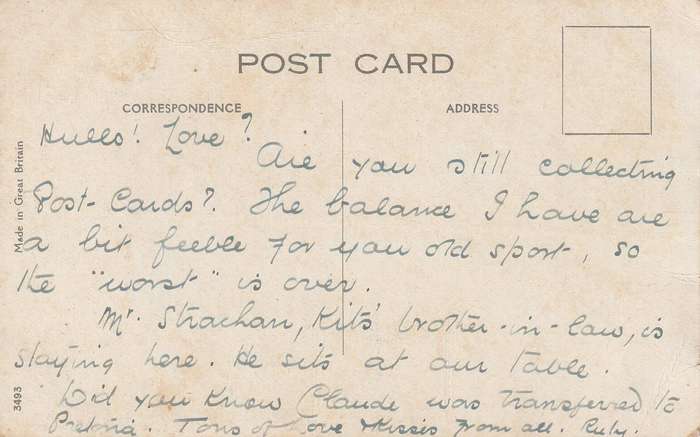 POST CARD
CORRESPONDENCE
ADDRESS
Made in Great Britain
3493
Hullo! Love?
Are you still collecting
Post-Cards? The balance I have are
a bit feeble for you old sport, so
the "worst" is over.
Mr. Strachan, Kits' brother-in-law, is
staying here. He sits at our table.
Did you know Claude was transferred to
Pretoria. Tons of love & kisses from all.